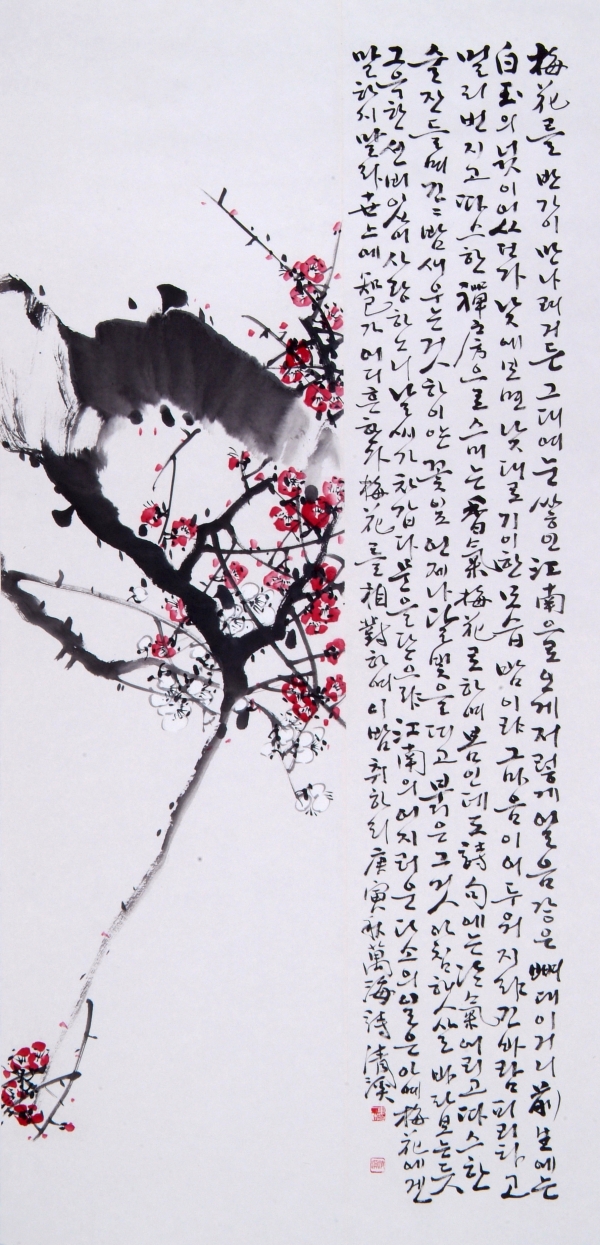 梅花를 반가이 만나려거든 그대여 눈 쌓인 江南으로 오게 저렇게 얼음같은 뼈대이거니 前生에는
白玉의 넋이었던가 낮에 보면 낮대로 기이한 모습 밤이라 그마음이 어두워지랴 긴 바람 피리타고
멀리 번지고 따스한 禪房으로 스미는 香氣 梅花로 하여 봄인데도 詩句에는 냉氣 어리고 따스한
술잔 들며 긴긴밤 새우는 것 하이얀 꽃잎 언제나 달빛을 띠고 붉은 그것 아침 햇살 바라보는 듯
그윽한 선비 있어 사랑하노니 날씨가 차갑다 문을 닫으랴 江南의 어지러운 다소의 일은 아예 梅花에겐
말하지 말라 世上에 知己가 어디 흔한가 梅花를 相對하여 이 밤 취하리 庚寅 秋 萬海 詩 清溪